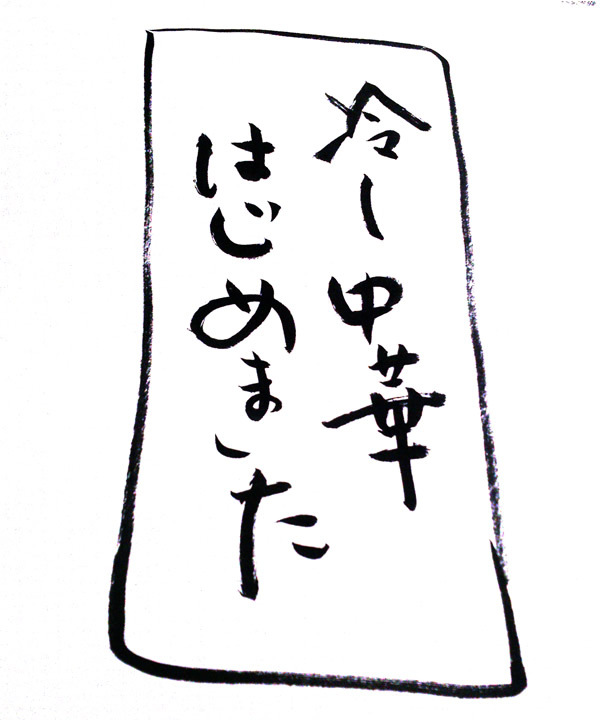 冷し中華
はじめました